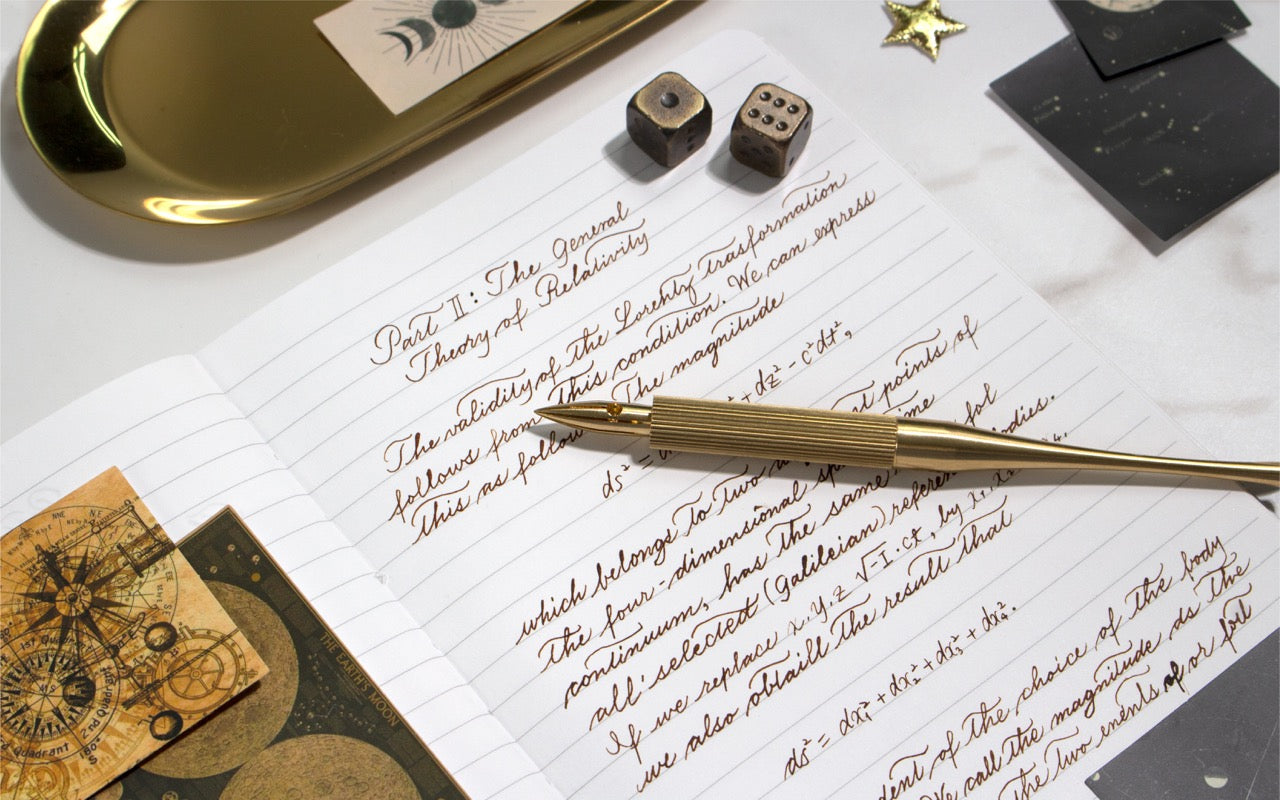 Part II: The General
Theory of Relativity
The validity of the Lorentz trasformation
follows from This condition. We can express
this as follow The magnitude
ds² = + dz² - c²dt²,
which belongs to two points of
the four-dimensional
continuum, has the same for
all's selected (Galileian) bodies.
If we replace x, y, z √-I · ct, by x₁, x₂
we also obtaill the result that
ds² = dx₁² + dx₂² + dx₃² + dx₄².
dent of the choice of the body
We call the magnitude ds the
the two enents of or foil
THE EARTH'S MOON
NNE
N.E
1st Quad
2nd Quadrant
d Quadrant
180°
S